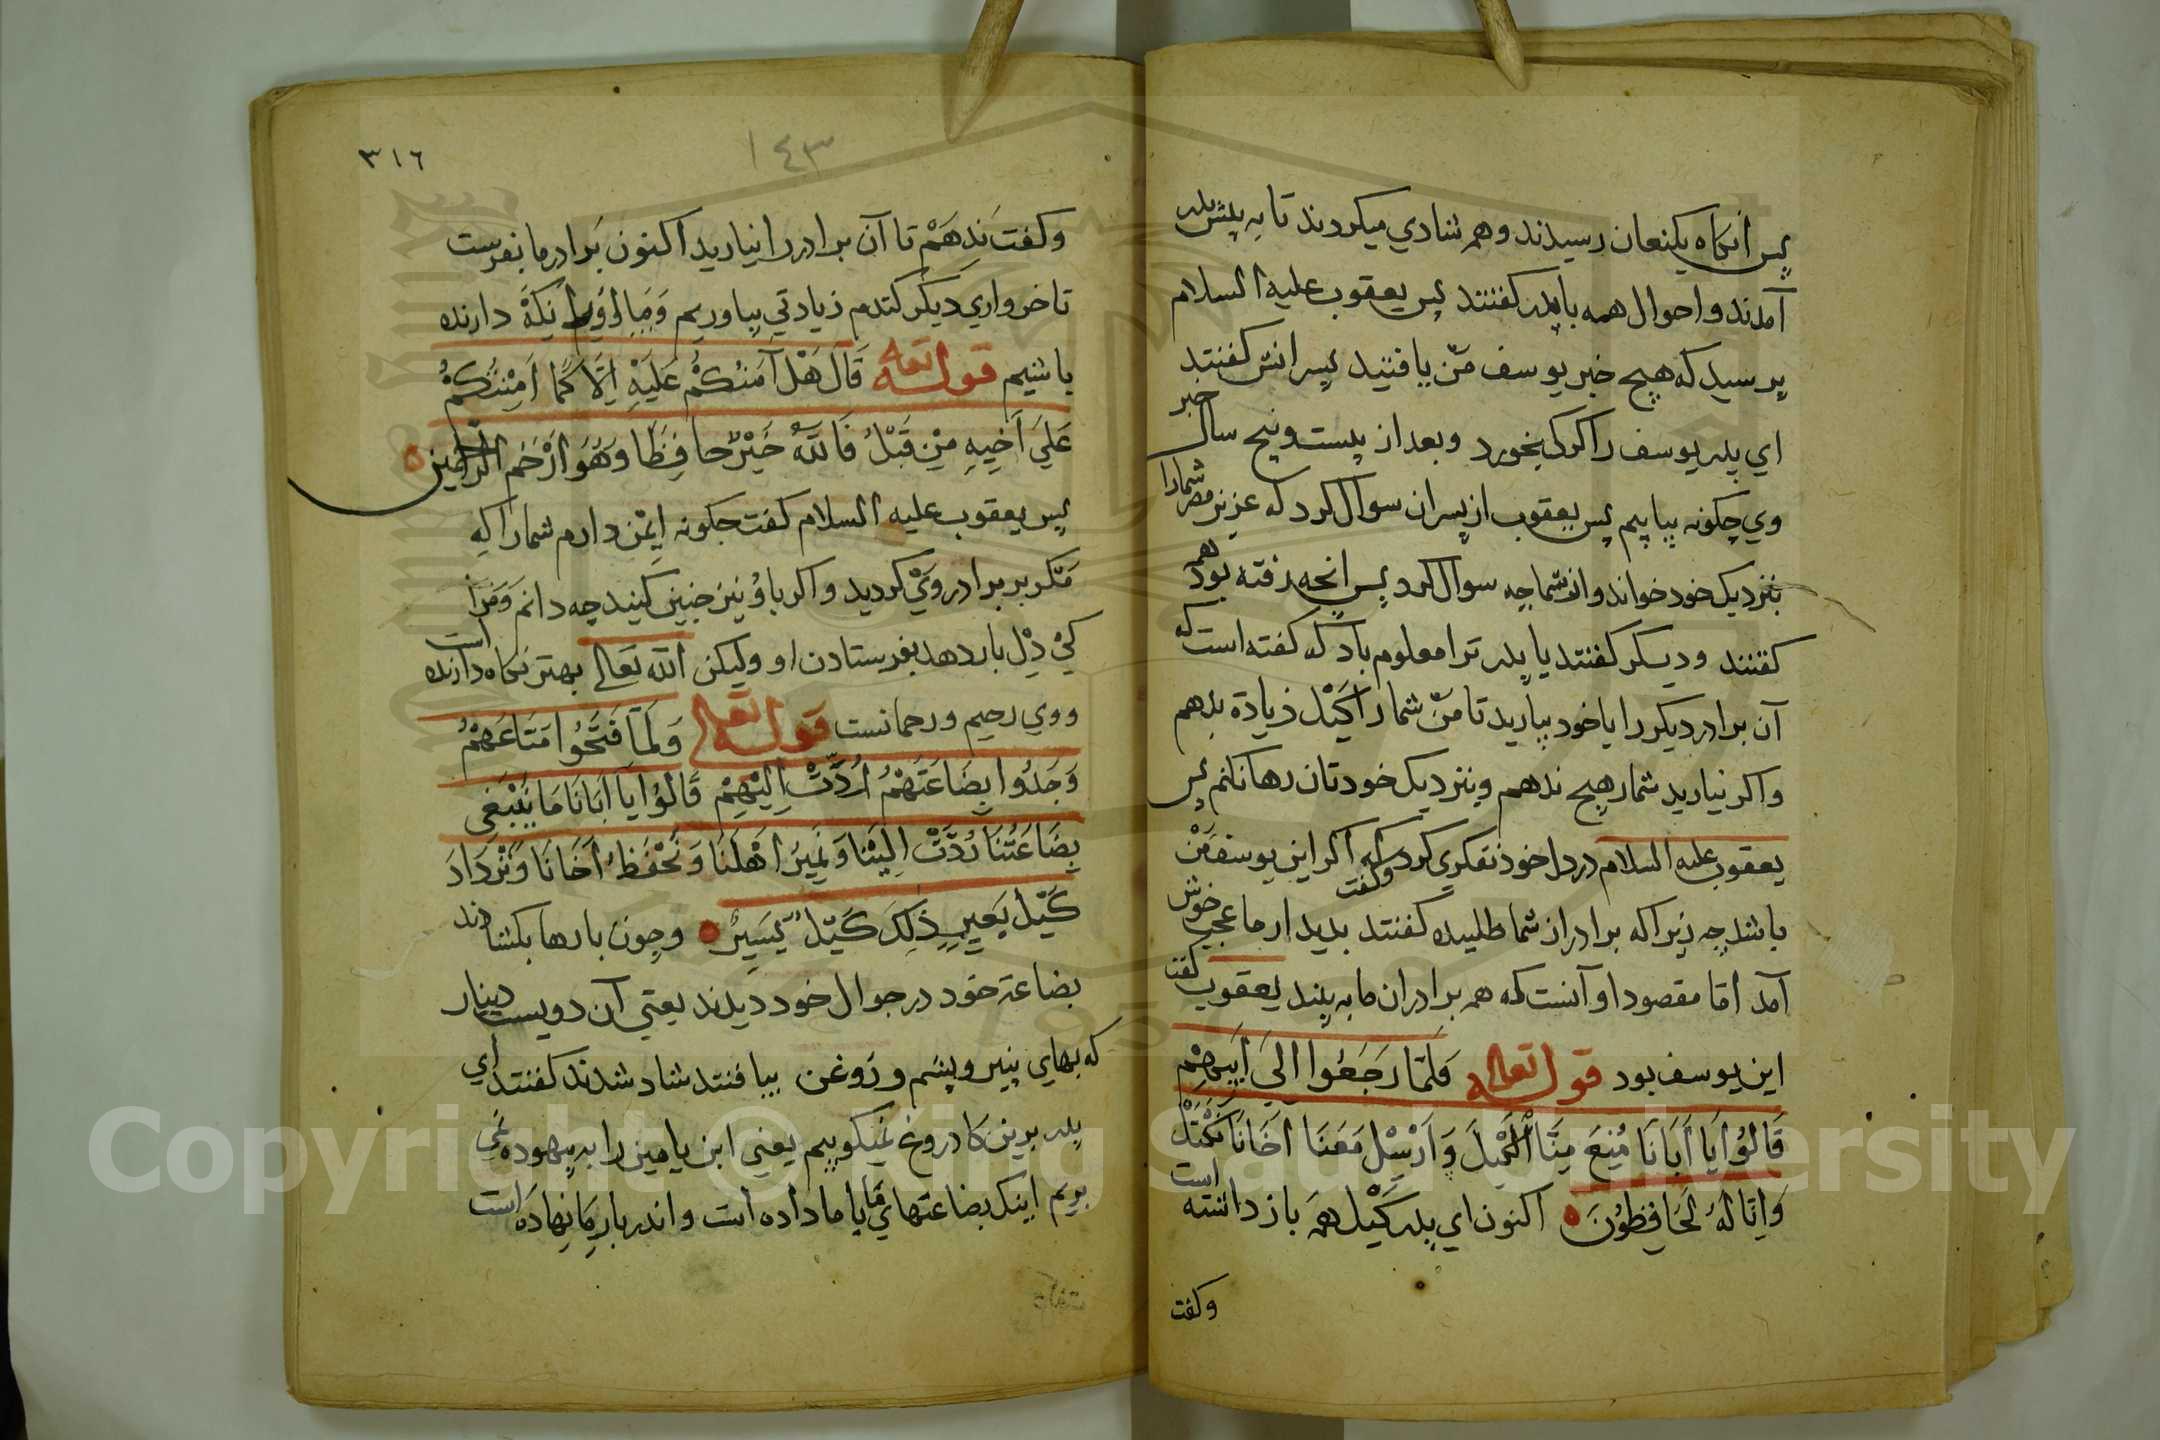 پس آنکاه بکنعان رسیدند و هم شادي میکردند تا به پیش پدر
آمدند و احوال همه با پدر کفتند پس یعقوب علیه السلام
پرسید که هیچ خبر یوسف من یافتید پسرانش کفتند
اي پدر یوسف را کرک بخورد و بعد از بیست و پنج سال خبر
وي چکونه بیابیم پس یعقوب از پسران سوال کرد که عزیز مصر شمارا
بنزدیک خود خواند و از شما چه سوال کرد پس انچه رفته بود همه
کفتند و دیکر کفتند یا پدر ترا معلوم باد که کفته است که
آن برادر دیکر را با خود بیارید تا من شمارا کیل زیادة بدهم
و اکر نیارید شمارا هیچ ندهم و بنزدیک خودتان رها نکنم پس
یعقوب علیه السلام در دل خود تفکري کرد و کفت که اکر این یوسف من
باشد چه زیرا که برادر از شما طلبیده کفتند بدید ار ما عجب خوش
آمد اما مقصود او آنست که هم برادران ما به بیند یعقوب کفت
این یوسف بود قوله تعالی فَلَمَّا رَجَعُوا اِلَى اَبِيهِمْ
قَالُوا يَا أَبَانَا مُنِعَ مِنَّا الْكَيْلُ فَأَرْسِلْ مَعَنَا اَخَانَا نَكْتَلْ
وَاِنَّا لَهُ لَحَافِظُونَ اکنون اي پدر کیل همه باز داشته است
وکفت
٣١٦
١٤٣
وکفت ندهم تا آن برادر را نیارید اکنون برادر ما بفرست
تا خرواري دیکر کندم زیادتي بیاوریم و ما او را نیکه دارنده
باشیم قوله تعالی قَالَ هَلْ آمَنُكُمْ عَلَيْهِ اِلَّا كَمَا اَمِنْتُكُمْ
عَلَى اَخِيهِ مِنْ قَبْلُ فَاللَّهُ خَيْرٌ حَافِظًا وَهُوَ اَرْحَمُ الرَّاحِمِينَ
پس یعقوب علیه السلام کفت چکونه ایمن دارم شمارا که
مکر بر برادر وي کردید و اکر با او نیز چنین کنید چه دانم و مرا
کي دل بار دهد بفرستادن او ولیکن الله تعالی بهتر نکاه دارنده است
و وي رحیم و رحمانست قوله تعالی وَلَمَّا فَتَحُوا مَتَاعَهُمْ
وَجَدُوا بِضَاعَتَهُمْ رُدَّتْ اِلَيْهِمْ قَالُوا يَا اَبَانَا مَا نَبْغِي
بِضَاعَتُنَا رُدَّتْ اِلَيْنَا وَنَمِيرُ اَهْلَنَا وَنَحْفَظُ اَخَانَا وَنَزْدَادُ
كَيْلَ بَعِيرٍ ذَلِكَ كَيْلٌ يَسِيرٌ و چون بارها بکشادند
بضاعة خود در جوال خود دیدند یعني آن دویست دینار
که بهاي پنیر و پشم و روغن بیافتند شاد شدند کفتند اي
پدر برین کار دروغ نمیکوییم یعني ابن یامین را به بیهوده نمي
بریم اینک بضاعتهاي ما با ما داده است و اندر بار ما نهاده است
Copyright © King Saud University